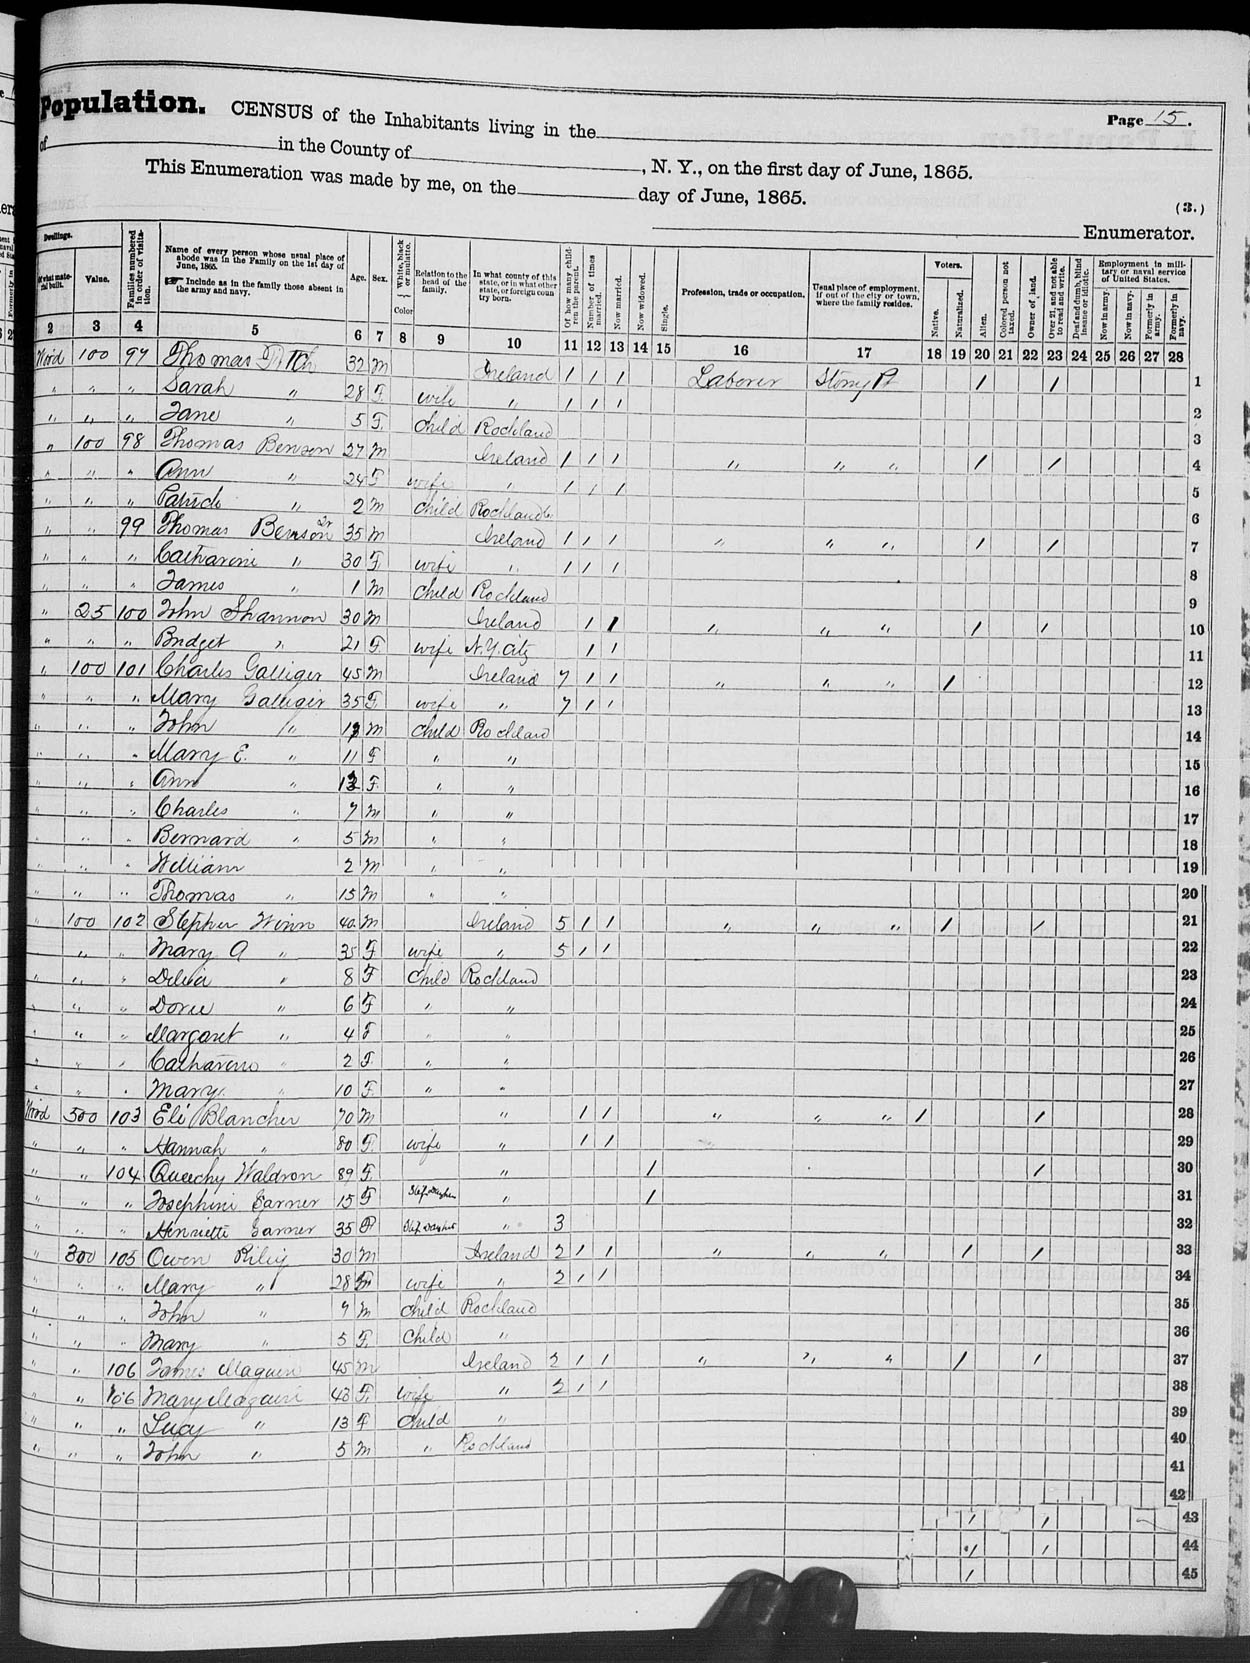 Population. CENSUS of the Inhabitants living in the
Page 15.
of in the County of , N. Y., on the first day of June, 1865.
This Enumeration was made by me, on the day of June, 1865.
(3.)
Enumerator.
Dwellings. Value. Families numbered in order of visitation. Name of every person whose usual place of abode was in the Family on the 1st day of June, 1865. Include as in the family those absent in the army and navy. Age. Sex. White, black or mulatto. Color Relation to the head of the family. In what county of this state, or in what other state, or foreign country born. Of how many children the parent. Number of times married. Now married. Now widowed. Single. Profession, trade or occupation. Usual place of employment, if out of the city or town, where the family resides. Voters. Native. Naturalized. Alien. Colored person not taxed. Owner of land. Over 21, and not able to read and write. Deaf and dumb, blind insane or idiotic. Employment in military or naval service of United States. Now in army. Now in navy. Formerly in army. Formerly in navy.
2 3 4 5 6 7 8 9 10 11 12 13 14 15 16 17 18 19 20 21 22 23 24 25 26 27 28
Wood 100 97 Thomas 32 M Ireland 1 1 1 Laborer Stony Pt / / 1
" " " Sarah " 28 F. wife " 1 1 1 2
" " " Jane " 5 F. Child Rockland 3
" 100 98 Thomas Benson 27 M Ireland 1 1 1 " " " / / 4
" " " Ann " 24 F wife " 1 1 1 5
" " " Patrick " 2 M Child Rockland 6
" " 99 Thomas Benson 35 M Ireland 1 1 1 " " " / / 7
" " " Catharine " 30 F. wife " 1 1 1 8
" " " James " 1 M Child Rockland 9
" 25 100 John Shannon 30 M Ireland 1 1 " " " / / 10
" " " Bridget " 21 F. wife N.Y. City 1 1 11
" 100 101 Charles Galliger 45 M Ireland 7 1 1 " " " / 12
" " " Mary Galliger 35 F. wife " 7 1 1 13
" " " John " M Child Rockland 14
" " " Mary E. " 11 F " " 15
" " " Ann " F. " " 16
" " " Charles " 7 M " " 17
" " " Bernard " 5 M " " 18
" " " William 2 M " " 19
" " " Thomas " 15 M " " 20
" 100 102 Stephen Winn 40 M Ireland 5 1 1 " " " / / 21
" " " Mary A " 35 F wife " 5 1 1 22
" " " Delia " 8 F Child Rockland 23
" " " " 6 F " " 24
" " " Margaret " 4 F " " 25
" " " Catharine " 2 F. " " 26
" " " Mary " 10 F. " " 27
Wood 500 103 Eli Blancher 70 M " 1 1 " " " / / 28
" " " Hannah " 80 F. wife " 1 1 29
" " 104 Queechy Waldron 89 F. " / / 30
" " " Josephine Garner 15 F " / 31
" " " Henriette Garner 35 F " 3 32
" 300 105 Owen Riley 30 M Ireland 2 1 1 " " " / / 33
" " " Mary " 28 F wife " 2 1 1 34
" " " John " 7 M Child Rockland 35
" " " Mary " 5 F. Child " 36
" " 106 James Maguire 45 M Ireland 2 1 1 " " " / / 37
" " 106 Mary Maguire 43 F. wife " 2 1 1 38
" " " Lucy " 13 F Child " 39
" " " John " 5 M " Rockland 40
41
42
/ / 43
/ / 44
/ 45